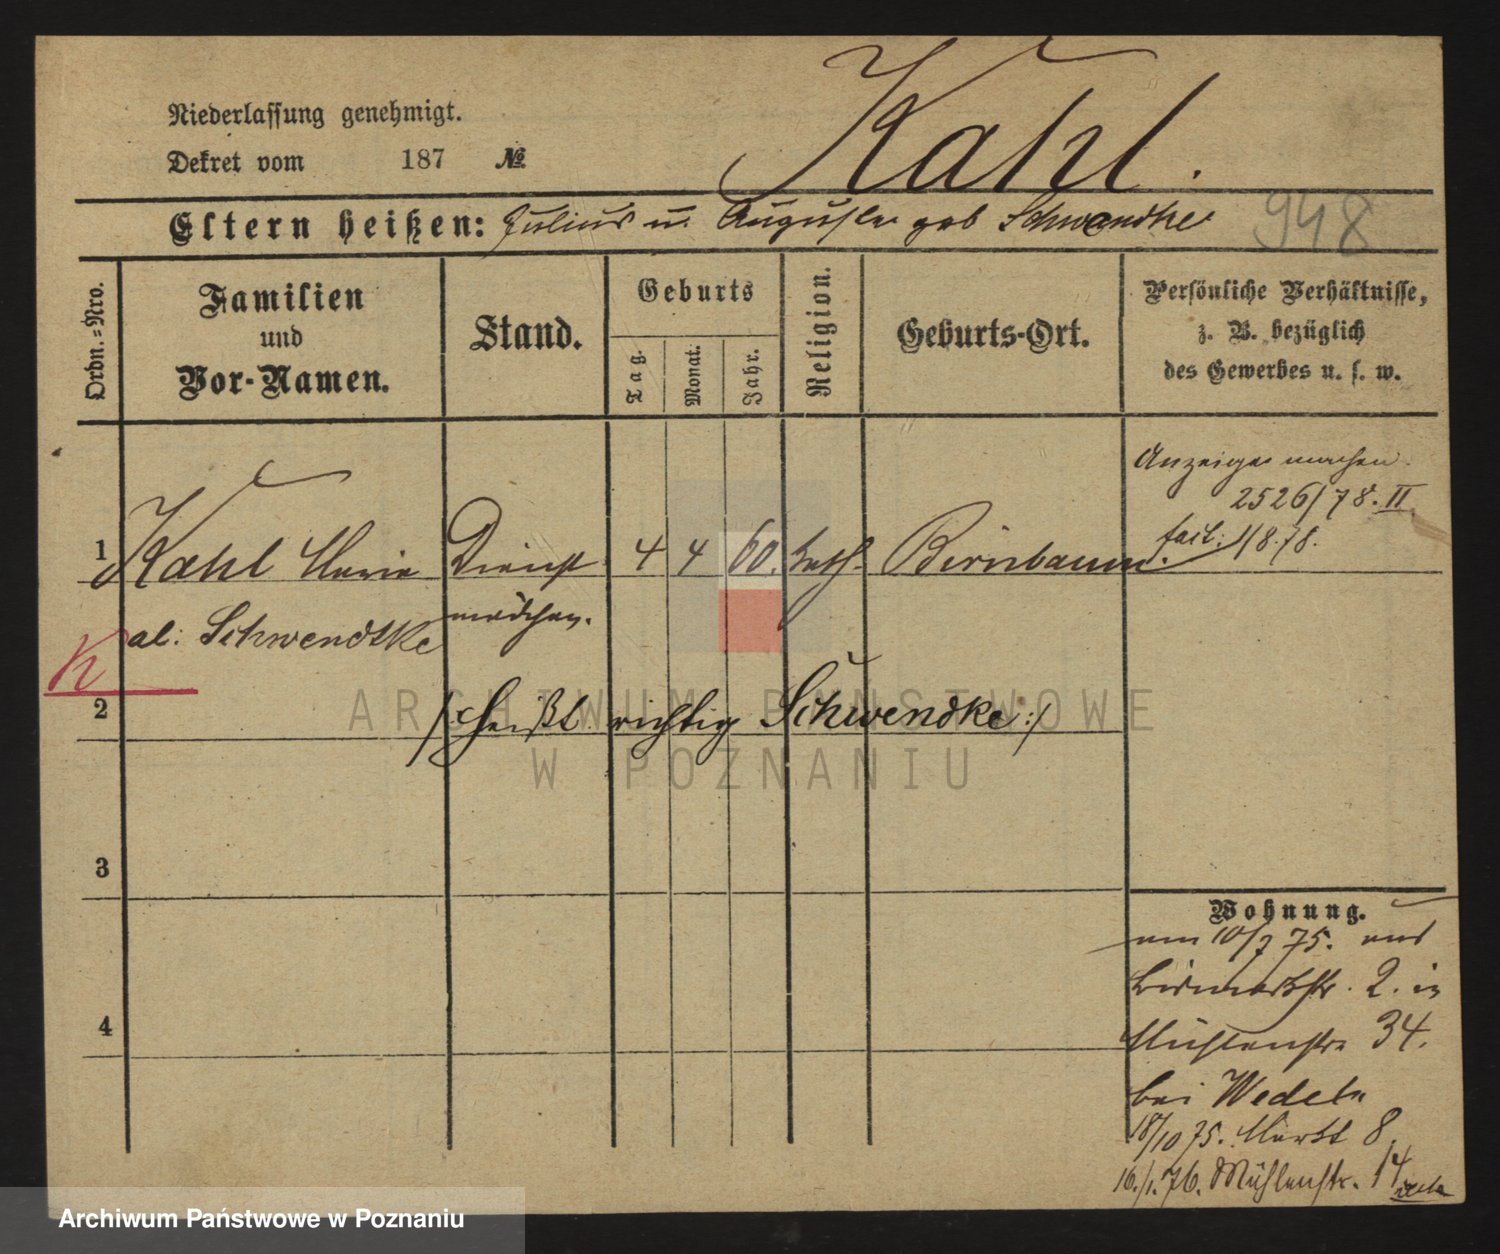 Kahl.
Niederlassung genehmigt.
Dekret vom 187 №
Eltern heißen: Julius u. Auguste geb Schwendtke
948
Ordn.=Nro.
Familien
und
Vor-Namen.
Stand.
Geburts
Tag.
Monat.
Jahr.
Religion.
Geburts-Ort.
Persönliche Verhältnisse,
z. B. bezüglich
des Gewerbes u. s. w.
Anzeige machen.
2526/78. II
fact: 1/8.78.
1 Kahl Marie Dienst 4 4 60. kath. Birnbaum.
al: Schwendtke mädchen.
K
2 /: heißt richtig Schwendke :/
ARCHIWUM PAŃSTWOWE
W POZNANIU
3
Wohnung.
am 10/7 75. aus
Bismarkstr. 2. in
Mühlenstr 34.
4
bei Wedel
18/10 75. Markt 8.
16./1. 76. Mühlenstr. 14
Archiwum Państwowe w Poznaniu